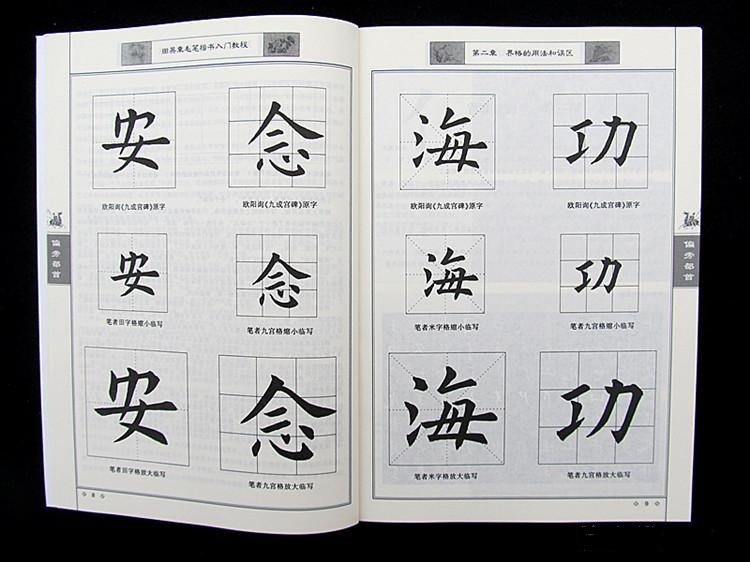 田英章毛笔楷书入门教程
安 念
欧阳询《九成宫碑》原字 欧阳询《九成宫碑》原字
安 念
笔者田字格缩小临写 笔者九宫格缩小临写
安 念
笔者田字格放大临写 笔者九宫格放大临写
偏旁部首
8
第二章 界格的用法和误区
海 功
欧阳询《九成宫碑》原字 欧阳询《九成宫碑》原字
海 功
笔者米字格缩小临写 笔者九宫格缩小临写
海 功
笔者米字格放大临写 笔者九宫格放大临写
偏旁部首
9